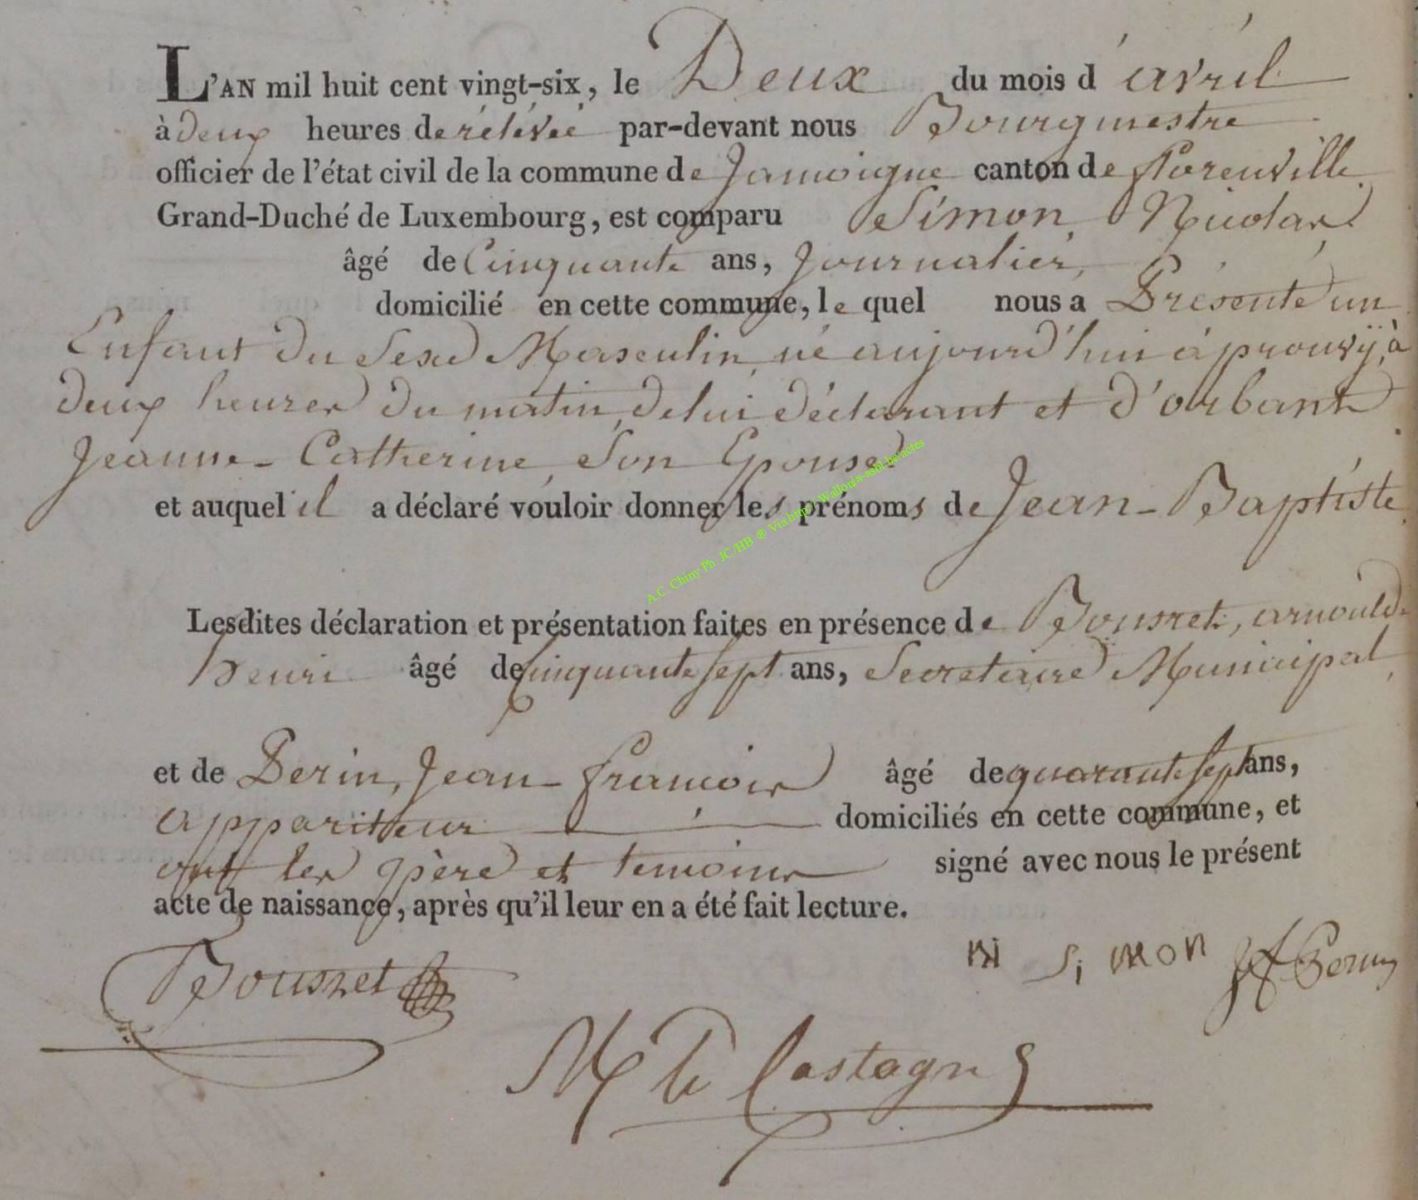 L'AN mil huit cent vingt-six, le Deux du mois d'avril
à deux heures de rélévéé par-devant nous Bourgmestre
officier de l'état civil de la commune de Jamoigne canton de florenville
Grand-Duché de Luxembourg, est comparu Simon, Nicolas
âgé de Cinquante ans, Journalier,
domicilié en cette commune, le quel nous a Présenté un
Enfant du Sexe Masculin, né aujourd'hui à prouvÿ, à
deux heures du matin, de lui déclarant et d'orbant
Jeanne-Catherine, Son Epouse
et auquel il a déclaré vouloir donner les prénoms de Jean-Baptiste.
Lesdites déclaration et présentation faites en présence de Housret, arnould
henri âgé de cinquante sept ans, Secretaire Municipal,
et de Perin, Jean-francois âgé de quarante sept ans,
appariteur domiciliés en cette commune, et
ont les père et temoins signé avec nous le présent
acte de naissance, après qu'il leur en a été fait lecture.
N Simon Jf Perin
Housret
M de Lastagne
A.C. Chiny Ph. JC/HB ® Via